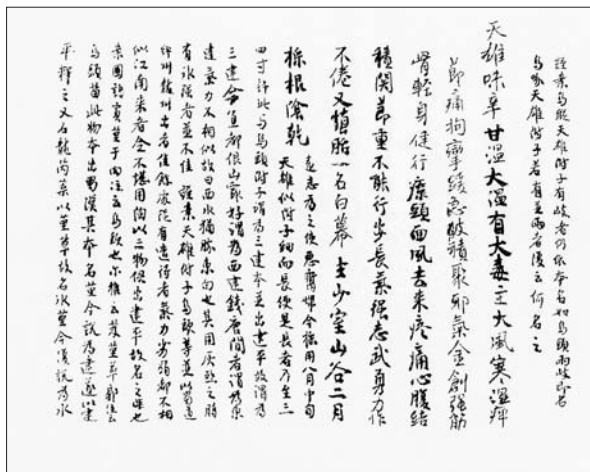 謹案烏頭天雄附子有岐者仍依本名如烏頭兩岐即名
烏喙天雄附子若有並兩者復云何名之
天雄味辛甘溫大溫有大毒主大風寒濕痺
節痛拘攣緩急破積聚邪氣金創強筋
骨輕身健行療頭面風去來疼痛心腹結
積關節重不能行步長氣強志武勇力作
不倦又墮胎一名白幕生少室山谷二月
採根陰乾
遠志為之使惡腐婢今採用八月中旬
天雄似附子細而長便是長者乃至三
四寸許此与烏頭附子謂為三建本並出建平故謂為
三建今宜都佷山最好謂為西建錢唐間者謂為東
建氣力不相似故曰西水猶勝東白也其用灰煞之時
有水強者並不佳 謹案天雄附子烏頭等並以蜀道
綿州龍州出者佳餘家從有造得者氣力劣弱都不相
似江南來者全不堪用陶以三物俱出建平故名之非也
案國語寘堇于肉注云烏頭也尔雅云芨堇草郭注云
烏頭苗此物本出蜀漢其本名堇今訛為建遂以建
平釋之又石龍芮葉似堇草故名水堇今復訛為水